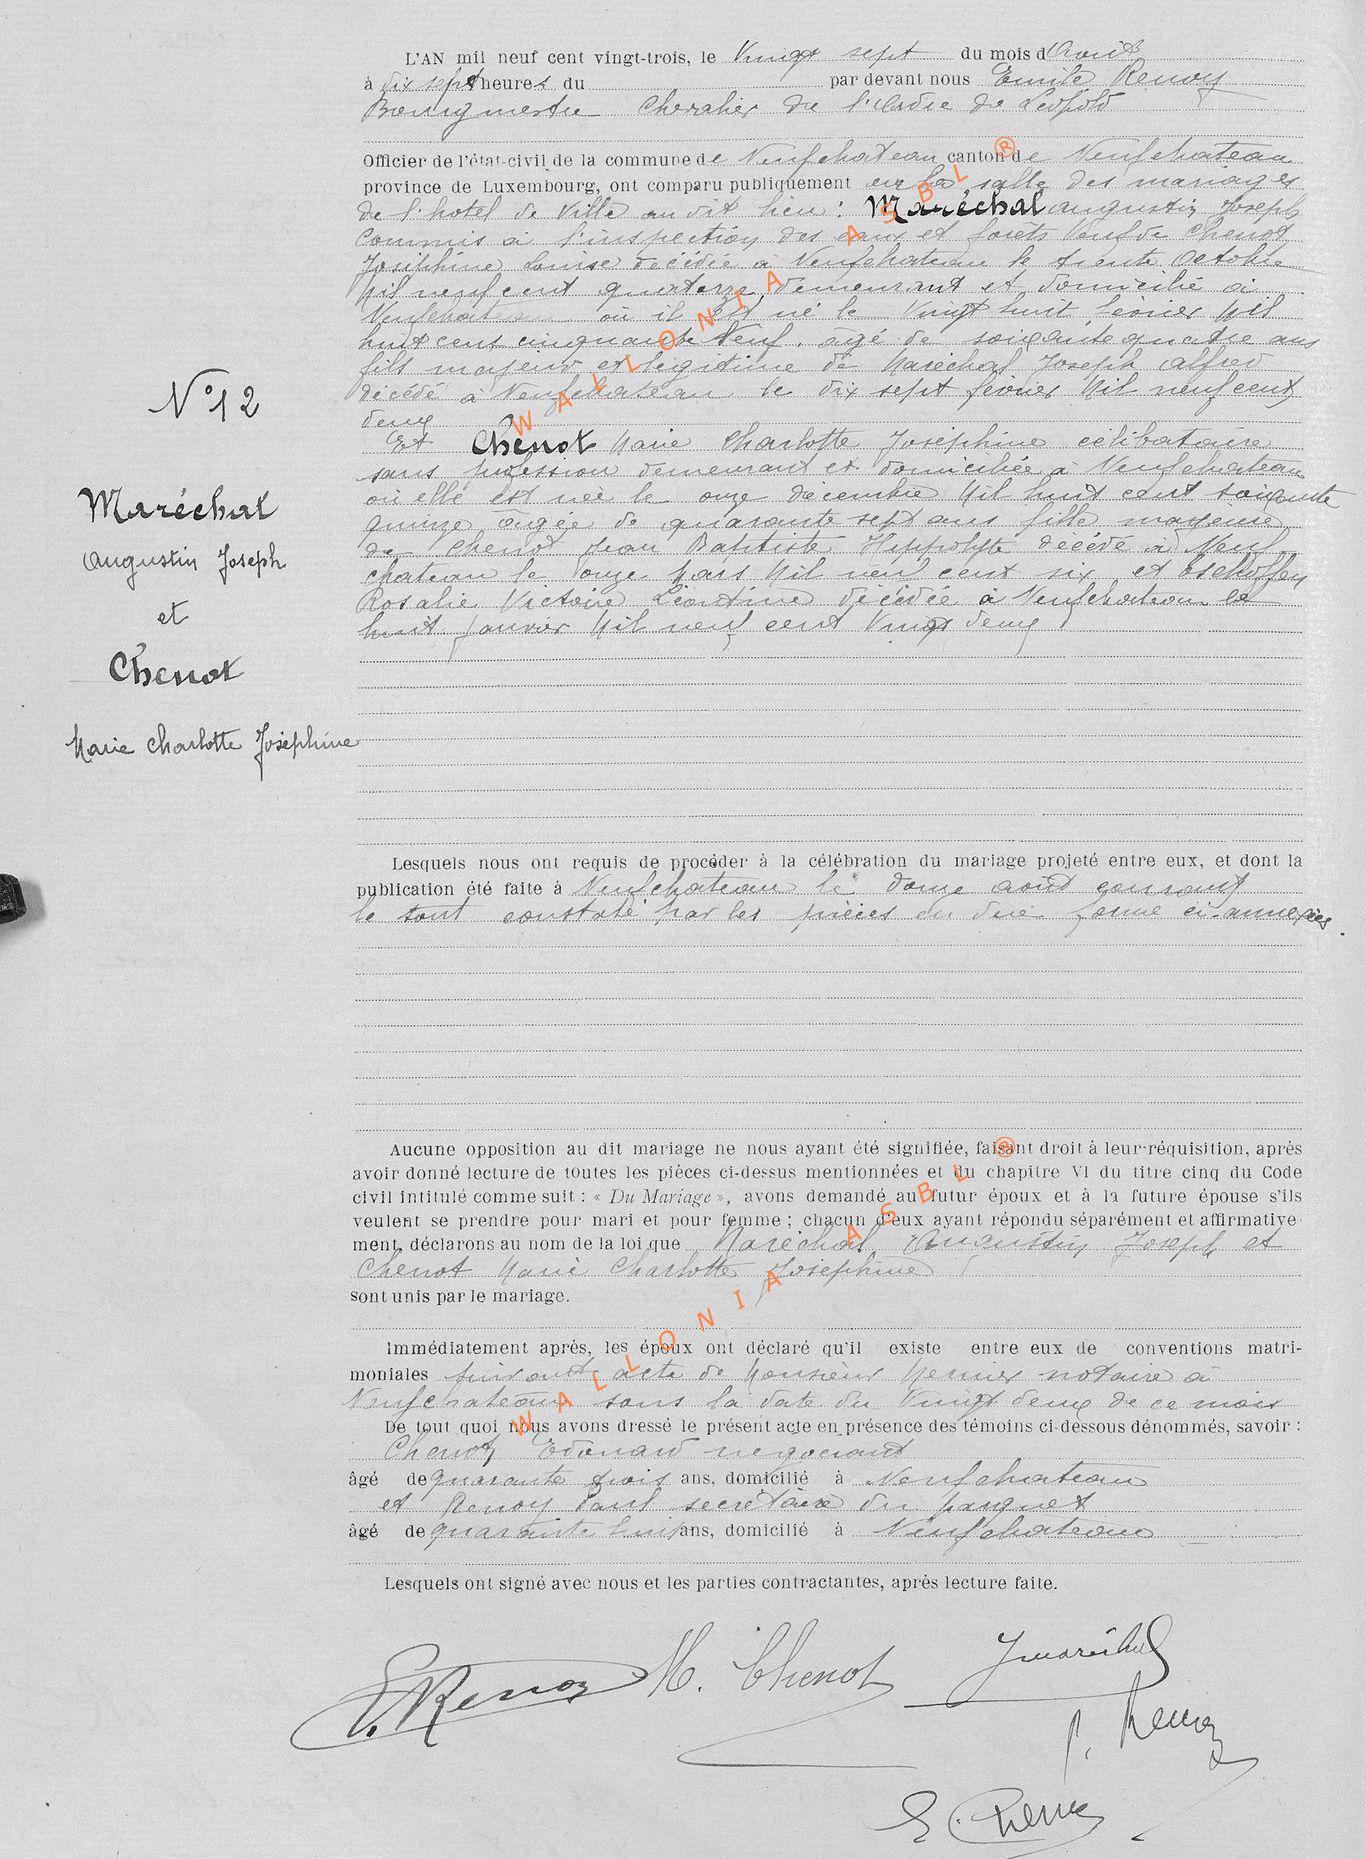 L'AN mil neuf cent vingt-trois, le Vingt sept du mois d'Août
à dix sept heures du par devant nous Emile Renoy
Bourgmestre Chevalier de l'Ordre de Léopold
Officier de l'état-civil de la commune de Neufchateau canton de Neufchateau
province de Luxembourg, ont comparu publiquement en la salle des mariages
de l'hotel de Ville au dit lieu : Maréchal Augustin Joseph
Commis à l'inspection des eaux et forêts Veuf de Chenot
Joséphine Louise décédée à Neufchateau le trente Octobre
Mil neuf cent quatorze, demeurant et domicilié à
Neufchateau où il est né le Vingt huit février Mil
huit cent cinquante Neuf, âgé de soixante quatre ans
fils majeur et légitime de Maréchal Joseph Alfred
décédé à Neufchateau le dix sept février Mil neuf cent
deux
Et Chenot Marie Charlotte Joséphine célibataire
sans profession demeurant et domiciliée à Neufchateau
où elle est née le onze décembre Mil huit cent soixante
quinze âgée de quarante sept ans fille majeure
de Chenot Jean Baptiste Hippolyte décédé à Neuf
chateau le onze Mars Mil neuf cent six et
Rosalie Victoire Léontine décédée à Neufchateau le
huit Janvier Mil neuf cent Vingt deux
N° 12
Maréchal
Augustin Joseph
et
Chenot
Marie Charlotte Joséphine
Lesquels nous ont requis de procéder à la célébration du mariage projeté entre eux, et dont la
publication été faite à Neufchateau le douze août courant
le tout constaté par les pièces en due forme ci-annexées.
Aucune opposition au dit mariage ne nous ayant été signifiée, faisant droit à leur réquisition, après
avoir donné lecture de toutes les pièces ci-dessus mentionnées et du chapitre VI du titre cinq du Code
civil intitulé comme suit : « Du Mariage », avons demandé au futur époux et à la future épouse s'ils
veulent se prendre pour mari et pour femme ; chacun d'eux ayant répondu séparément et affirmative-
ment, déclarons au nom de la loi que Maréchal Augustin Joseph et
Chenot Marie Charlotte Joséphine
sont unis par le mariage.
Immédiatement après, les époux ont déclaré qu'il existe entre eux de conventions matri-
moniales suivant acte de Monsieur notaire à
Neufchateau sous la date du Vingt deux de ce mois
De tout quoi nous avons dressé le présent acte en présence des témoins ci-dessous dénommés, savoir :
Chenot Edouard negociant
âgé de quarante trois ans, domicilié à Neufchateau
et Renoy Paul secrétaire du parquet
âgé de quarante huit ans, domicilié à Neufchateau
Lesquels ont signé avec nous et les parties contractantes, après lecture faite.
E. Renoy M. Chenot J Maréchal
P. Renoy
E. Chenot
WALLONIA ASBL ®
WALLONIA ASBL ®